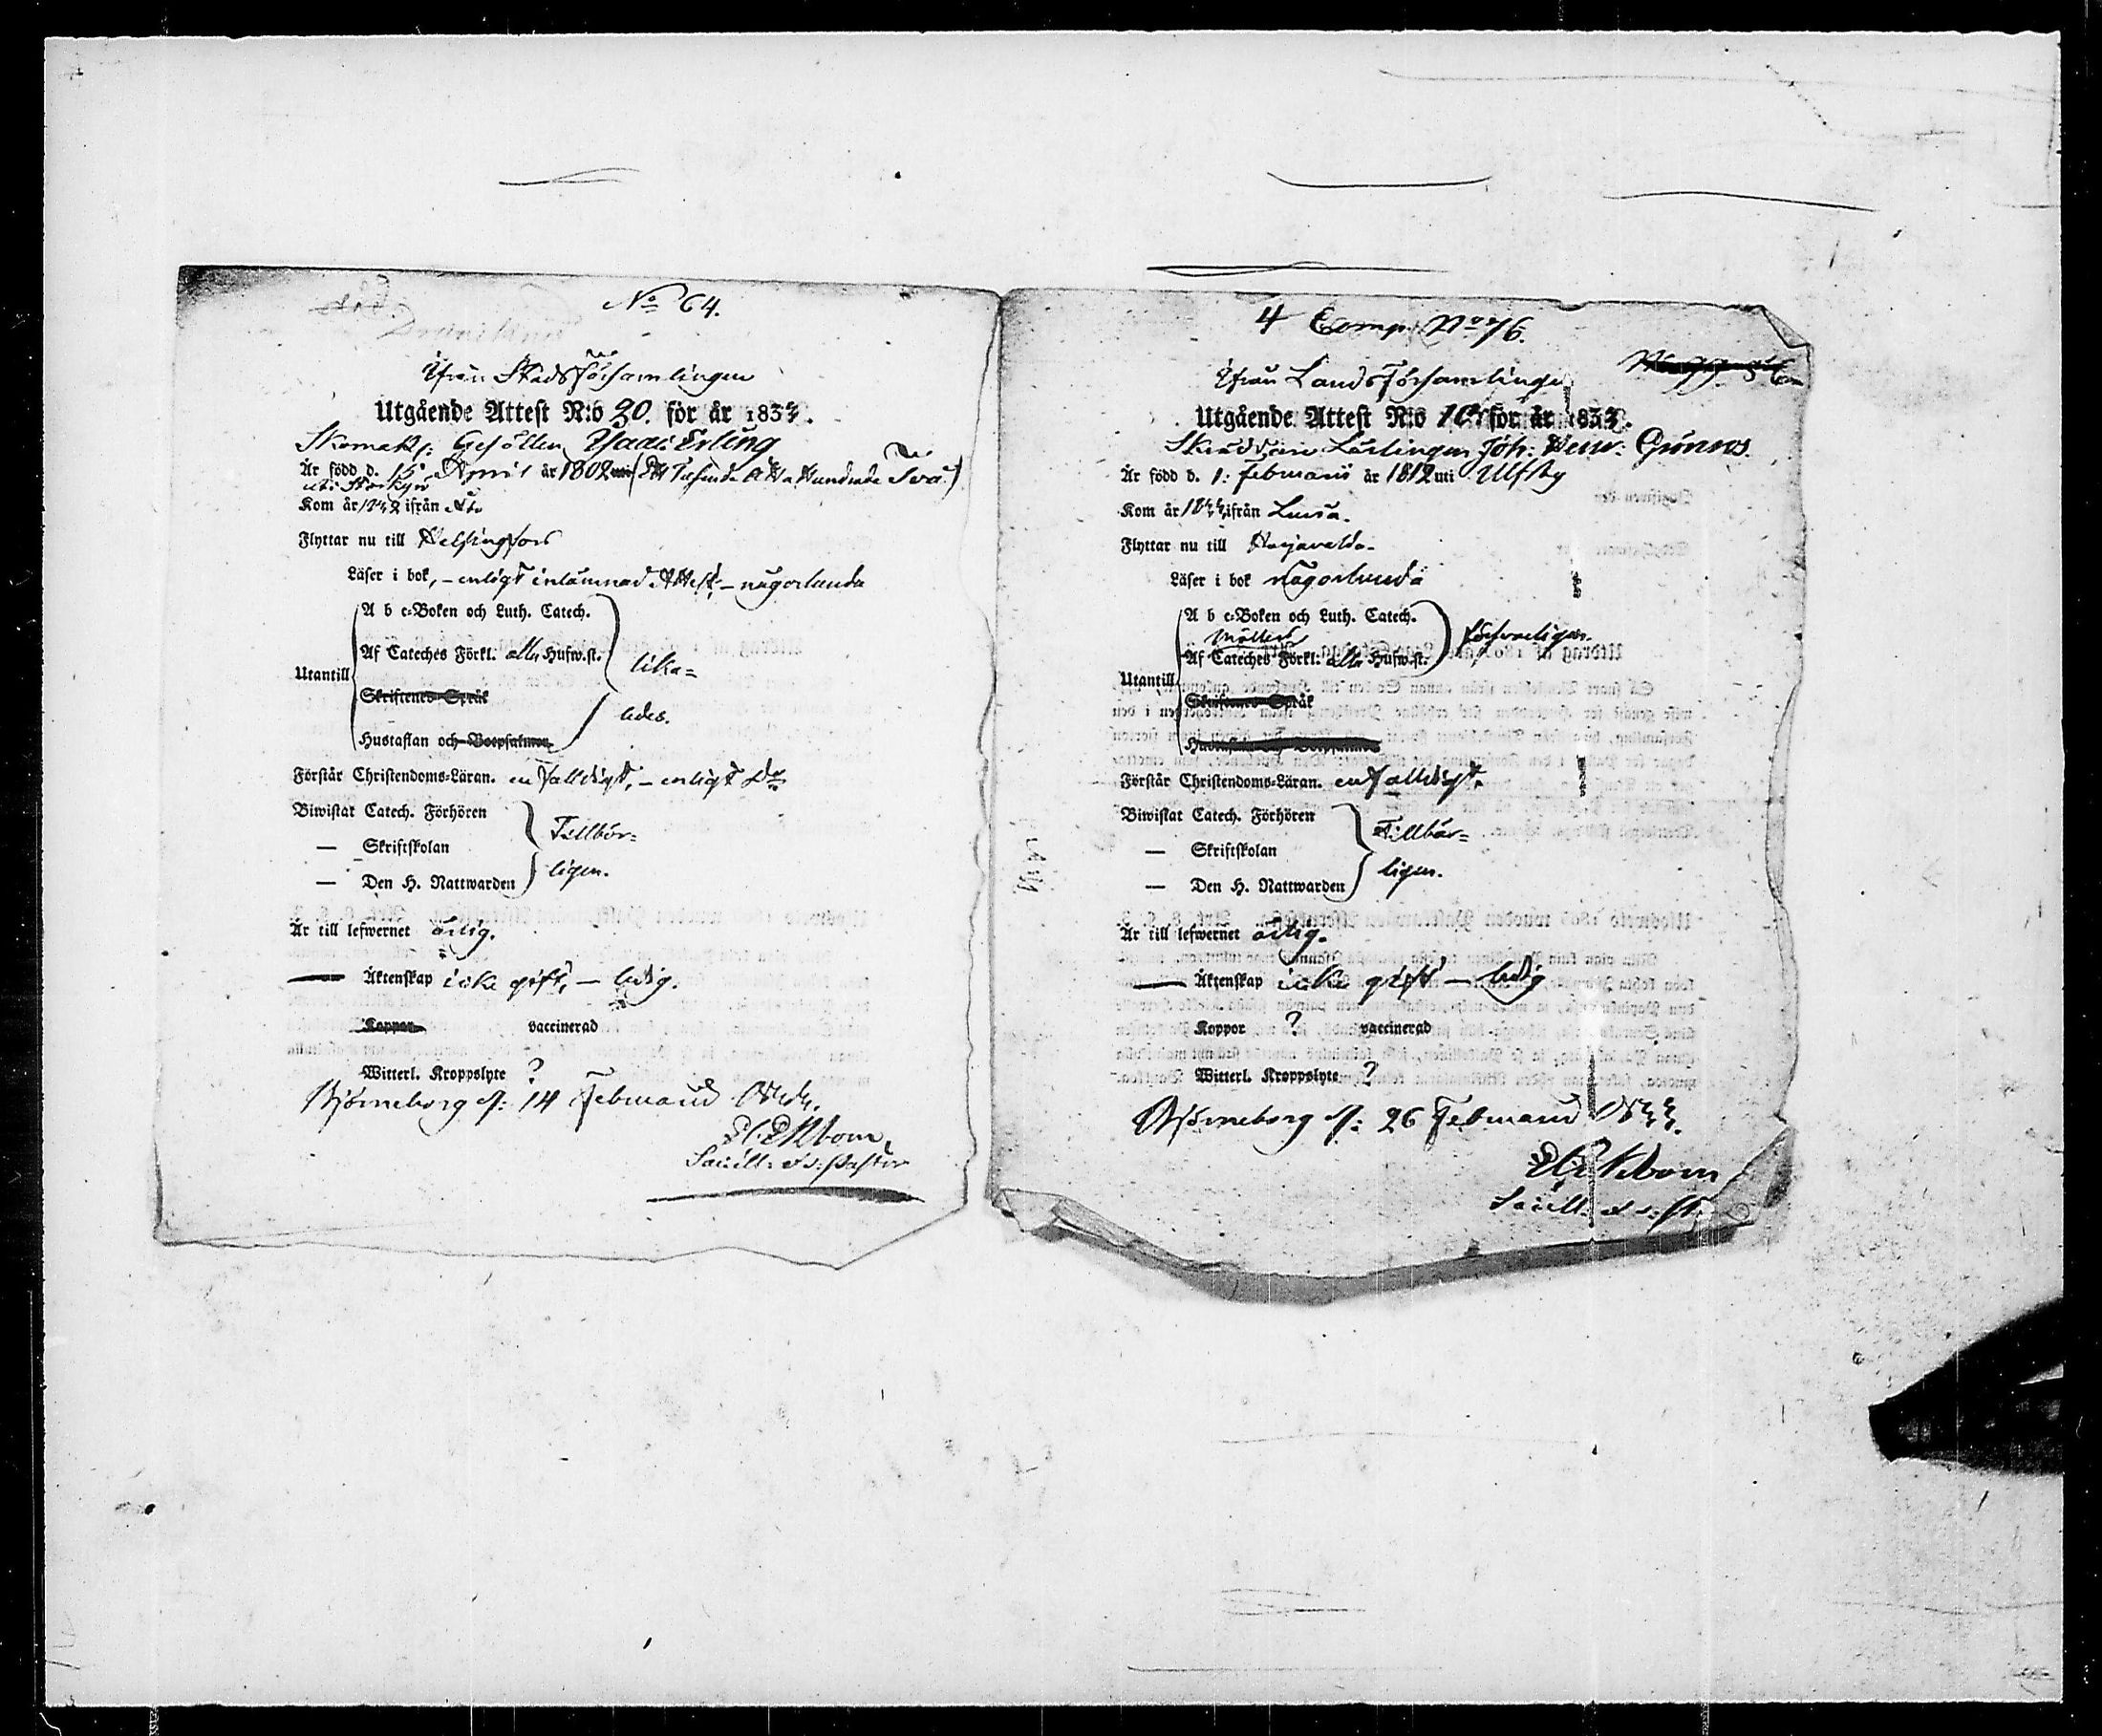 No 64.
Ifrån Stadsförsamlingen
Utgående Attest N:o 30. för år 1834.
Skomak: Gesällen Isaac Erling
Är född d. 15 April år 1802 uti (Ett Tusende Åtta Hundrade Två)
uti Storkyro
Kom år ifrån
Flyttar nu till Helsingfors
Läser i bok, – enligt inlämnad Attest, – någorlunda
A b c-Boken och Luth. Catech.
Af Cateches Förkl: alla Hufw.st. lika=
Utantill
Skriftenes Språk
ledes.
Hustaflan och Botpsalmen
Förstår Christendoms-Läran. enfalldigt, – enligt Do
Biwistat Catech. Förhören
Tillbör=
— Skriftskolan
ligen.
— Den H. Nattwarden
Är till lefwernet ärlig.
Äktenskap icke gift, – ledig.
Koppor vaccinerad
Witterl. Kroppslyte ?
Björneborg d: 14 Februarii
Ekbom,
Sacell: v: Pastor
4 Comp. No 76.
Ifrån Landsförsamlingen
Utgående Attest N:o för år 1834.
Skräddare Lärlingen Joh: Henr: Grönroos.
Är född d. 1: Februarii år 1812 uti Ulfsby
Kom år ifrån Luvia.
Flyttar nu till Harjavalda.
Läser i bok någorlunda
A b c-Boken och Luth. Catech.
Möllers försvarligen.
Af Cateches Förkl: alla Hufw.st.
Utantill
Skriftenes Språk
Hustaflan och Botpsalmen
Förstår Christendoms-Läran. enfalldigt.
Biwistat Catech. Förhören
Tillbör=
— Skriftskolan
ligen.
— Den H. Nattwarden
Är till lefwernet ärlig.
Äktenskap icke gift – ledig
Koppor ? vaccinerad
Witterl. Kroppslyte ?
Björneborg d: 26 Februarii
Ekbom
Sacell: v: